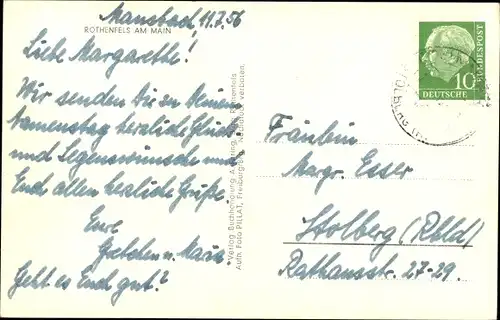 Mansbach, 11.7.56
ROTHENFELS AM MAIN
Liebe Margarethe!
Wir senden Dir zu Deinem
Namenstag herzliche Glück-
und Segenswünsche und
Euch allen herzliche Grüße.
Eure
Gretchen u. Maria
Geht es Euch gut?
Verlag Buchhandlung
Auth. Foto PILLAT, Freiburg
verboten.
10
DEUTSCHE
BUNDESPOST
Fräulein
Margr. Esser
Stolberg (Rhld)
Rathausstr. 27-29.